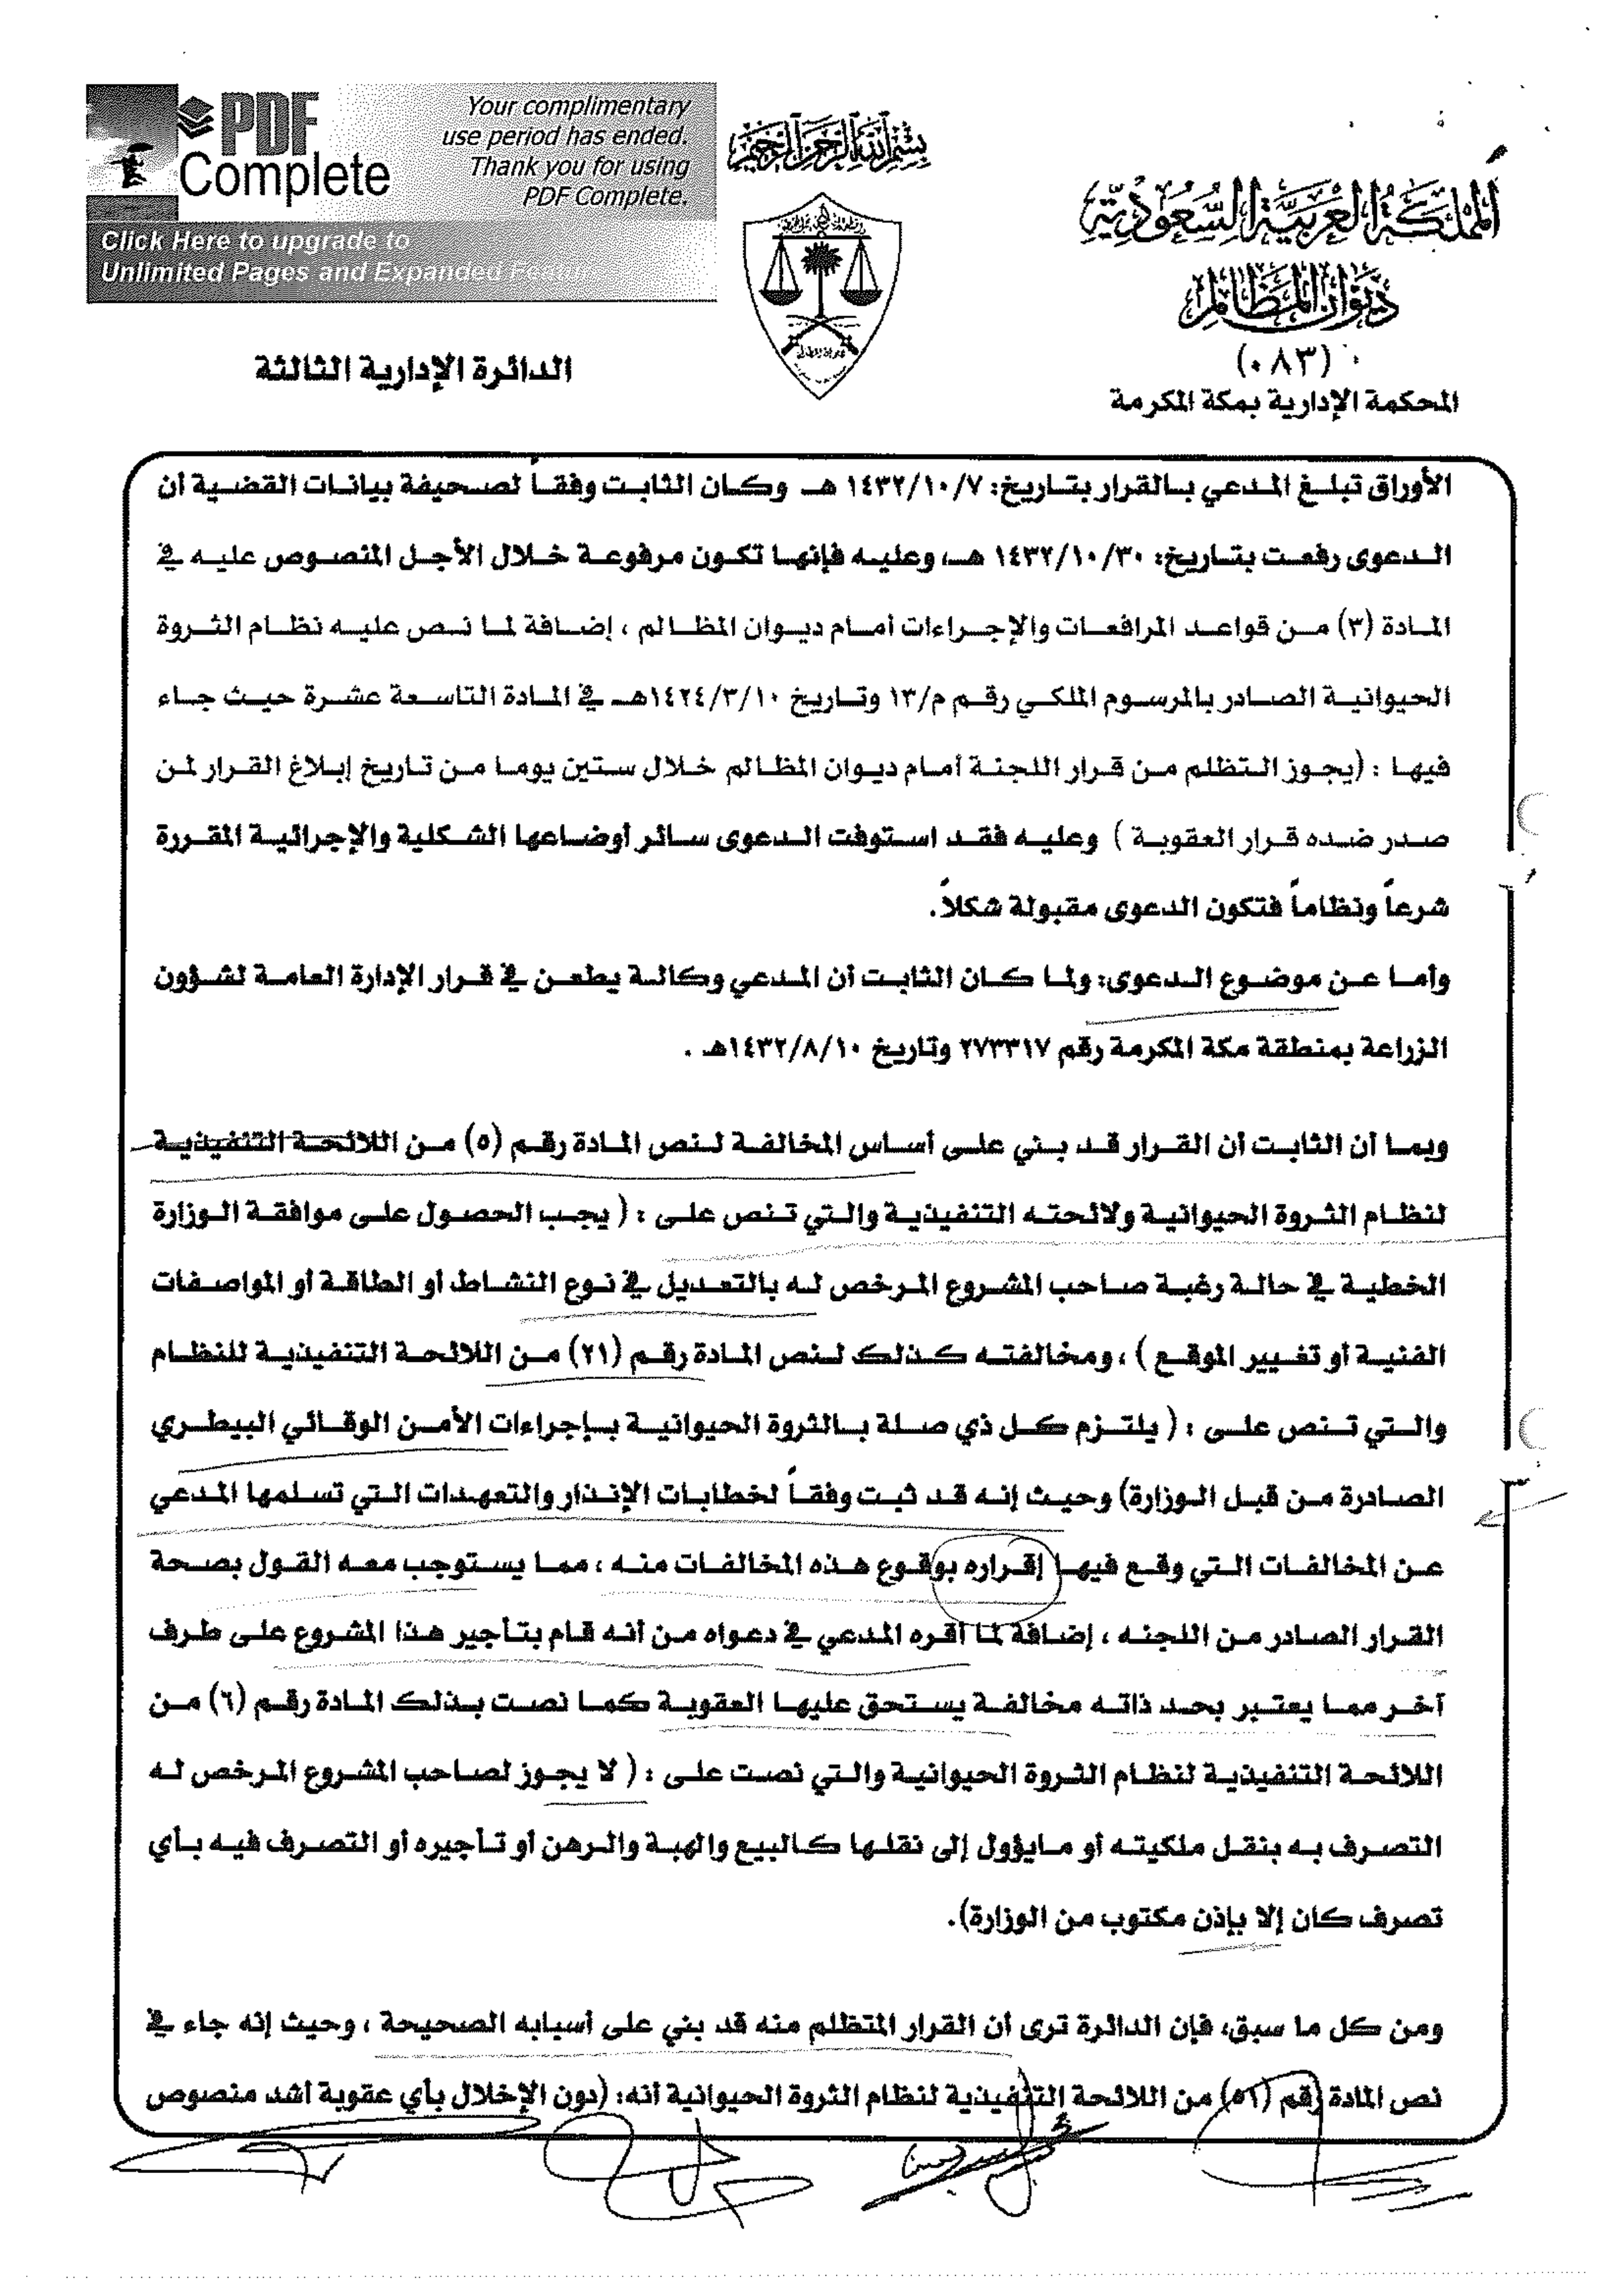 PDF Complete
Your complimentary
use period has ended.
Thank you for using
PDF Complete.
Click Here to upgrade to
Unlimited Pages and Expanded
بسم الله الرحمن الرحيم
المملكة العربية السعودية
ديوان المظالم
(٠٨٣)
المحكمة الإدارية بمكة المكرمة
الدائرة الإدارية الثالثة
الأوراق تبلغ المدعي بالقرار بتاريخ: ١٤٣٢/١٠/٧ هـ وكان الثابت وفقاً لصحيفة بيانات القضية أن
الدعوى رفعت بتاريخ: ١٤٣٢/١٠/٣٠ هـ، وعليه فإنها تكون مرفوعة خلال الأجل المنصوص عليه في
المادة (٣) من قواعد المرافعات والإجراءات أمام ديوان المظالم ، إضافة لما نص عليه نظام الثروة
الحيوانية الصادر بالمرسوم الملكي رقم م/١٣ وتاريخ ١٤٢٤/٣/١٠هـ في المادة التاسعة عشرة حيث جاء
فيها : (يجوز التظلم من قرار اللجنة أمام ديوان المظالم خلال ستين يوما من تاريخ إبلاغ القرار لمن
صدر ضده قرار العقوبة ) وعليه فقد استوفت الدعوى سائر أوضاعها الشكلية والإجرائية المقررة
شرعاً ونظاماً فتكون الدعوى مقبولة شكلاً.
وأما عن موضوع الدعوى: ولما كان الثابت أن المدعي وكالة يطعن في قرار الإدارة العامة لشؤون
الزراعة بمنطقة مكة المكرمة رقم ٢٧٣٣١٧ وتاريخ ١٤٣٢/٨/١٠هـ .
وبما أن الثابت أن القرار قد بني على أساس المخالفة لنص المادة رقم (٥) من اللائحة التنفيذية
لنظام الثروة الحيوانية ولائحته التنفيذية والتي تنص على : ( يجب الحصول على موافقة الوزارة
الخطية في حالة رغبة صاحب المشروع المرخص له بالتعديل في نوع النشاط أو الطاقة أو المواصفات
الفنية أو تغيير الموقع ) ، ومخالفته كذلك لنص المادة رقم (٢١) من اللائحة التنفيذية للنظام
والتي تنص على : ( يلتزم كل ذي صلة بالثروة الحيوانية بإجراءات الأمن الوقائي البيطري
الصادرة من قبل الوزارة) وحيث إنه قد ثبت وفقاً لخطابات الإنذار والتعهدات التي تسلمها المدعي
عن المخالفات التي وقع فيها إقراره بوقوع هذه المخالفات منه ، مما يستوجب معه القول بصحة
القرار الصادر من اللجنه ، إضافة لما أقره المدعي في دعواه من أنه قام بتأجير هذا المشروع على طرف
آخر مما يعتبر بحد ذاته مخالفة يستحق عليها العقوبة كما نصت بذلك المادة رقم (٦) من
اللائحة التنفيذية لنظام الثروة الحيوانية والتي نصت على : ( لا يجوز لصاحب المشروع المرخص له
التصرف به بنقل ملكيته أو مايؤول إلى نقلها كالبيع والهبة والرهن أو تأجيره أو التصرف فيه بأي
تصرف كان إلا بإذن مكتوب من الوزارة).
ومن كل ما سبق، فإن الدائرة ترى أن القرار المتظلم منه قد بني على أسبابه الصحيحة ، وحيث إنه جاء في
نص المادة رقم (٥١) من اللائحة التنفيذية لنظام الثروة الحيوانية أنه: (دون الإخلال بأي عقوبة أشد منصوص